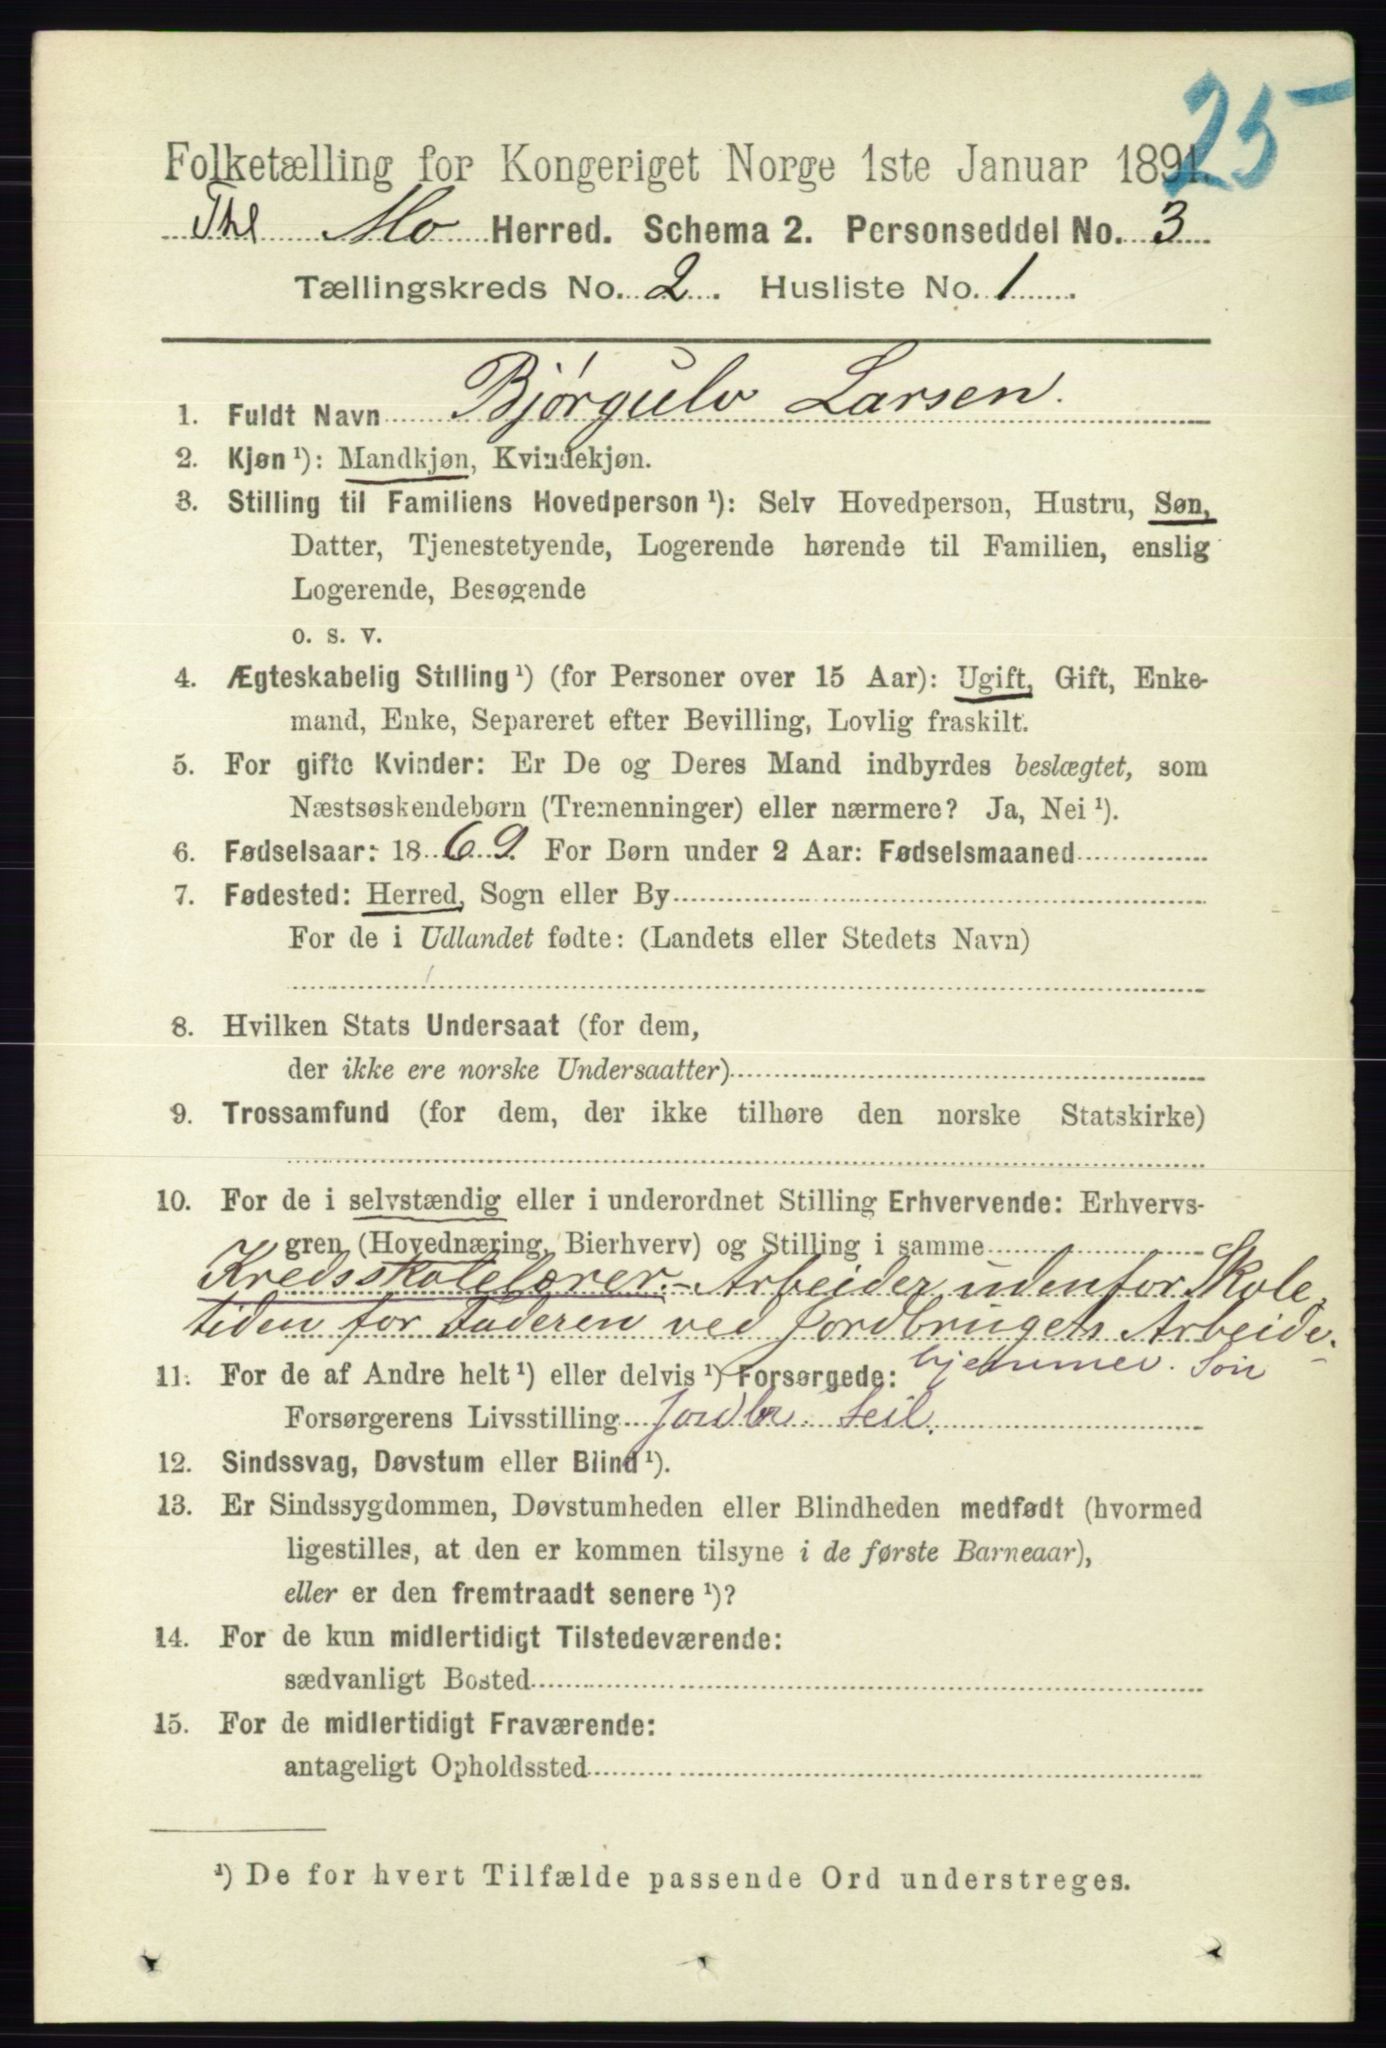 25
Folketælling for Kongeriget Norge 1ste Januar 1891.
Thl Mo Herred. Schema 2. Personseddel No. 3
Tællingskreds No. 2. Husliste No. 1.
1. Fuldt Navn Bjørgulv Larsen.
2. Kjøn ¹): Mandkjøn, Kvindekjøn.
3. Stilling til Familiens Hovedperson ¹): Selv Hovedperson, Hustru, Søn,
Datter, Tjenestetyende, Logerende hørende til Familien, enslig
Logerende, Besøgende
o. s. v.
4. Ægteskabelig Stilling ¹) (for Personer over 15 Aar): Ugift, Gift, Enke-
mand, Enke, Separeret efter Bevilling, Lovlig fraskilt.
5. For gifte Kvinder: Er De og Deres Mand indbyrdes beslægtet, som
Næstsøskendebørn (Tremenninger) eller nærmere? Ja, Nei ¹).
6. Fødselsaar: 1869. For Børn under 2 Aar: Fødselsmaaned
7. Fødested: Herred, Sogn eller By
For de i Udlandet fødte: (Landets eller Stedets Navn)
8. Hvilken Stats Undersaat (for dem,
der ikke ere norske Undersaatter)
9. Trossamfund (for dem, der ikke tilhøre den norske Statskirke)
10. For de i selvstændig eller i underordnet Stilling Erhvervende: Erhvervs-
gren (Hovednæring, Bierhverv) og Stilling i samme
Kredsskolelærer. - Arbeider udenfor Skole-
tiden for Faderen ved Jordbrugets Arbeide.
hjemmev. Søn
11. For de af Andre helt ¹) eller delvis ¹) Forsørgede:
Forsørgerens Livsstilling Jordbr. Seil.
12. Sindssvag, Døvstum eller Blind ¹).
13. Er Sindssygdommen, Døvstumheden eller Blindheden medfødt (hvormed
ligestilles, at den er kommen tilsyne i de første Barneaar),
eller er den fremtraadt senere ¹)?
14. For de kun midlertidigt Tilstedeværende:
sædvanligt Bosted
15. For de midlertidigt Fraværende:
antageligt Opholdssted
¹) De for hvert Tilfælde passende Ord understreges.